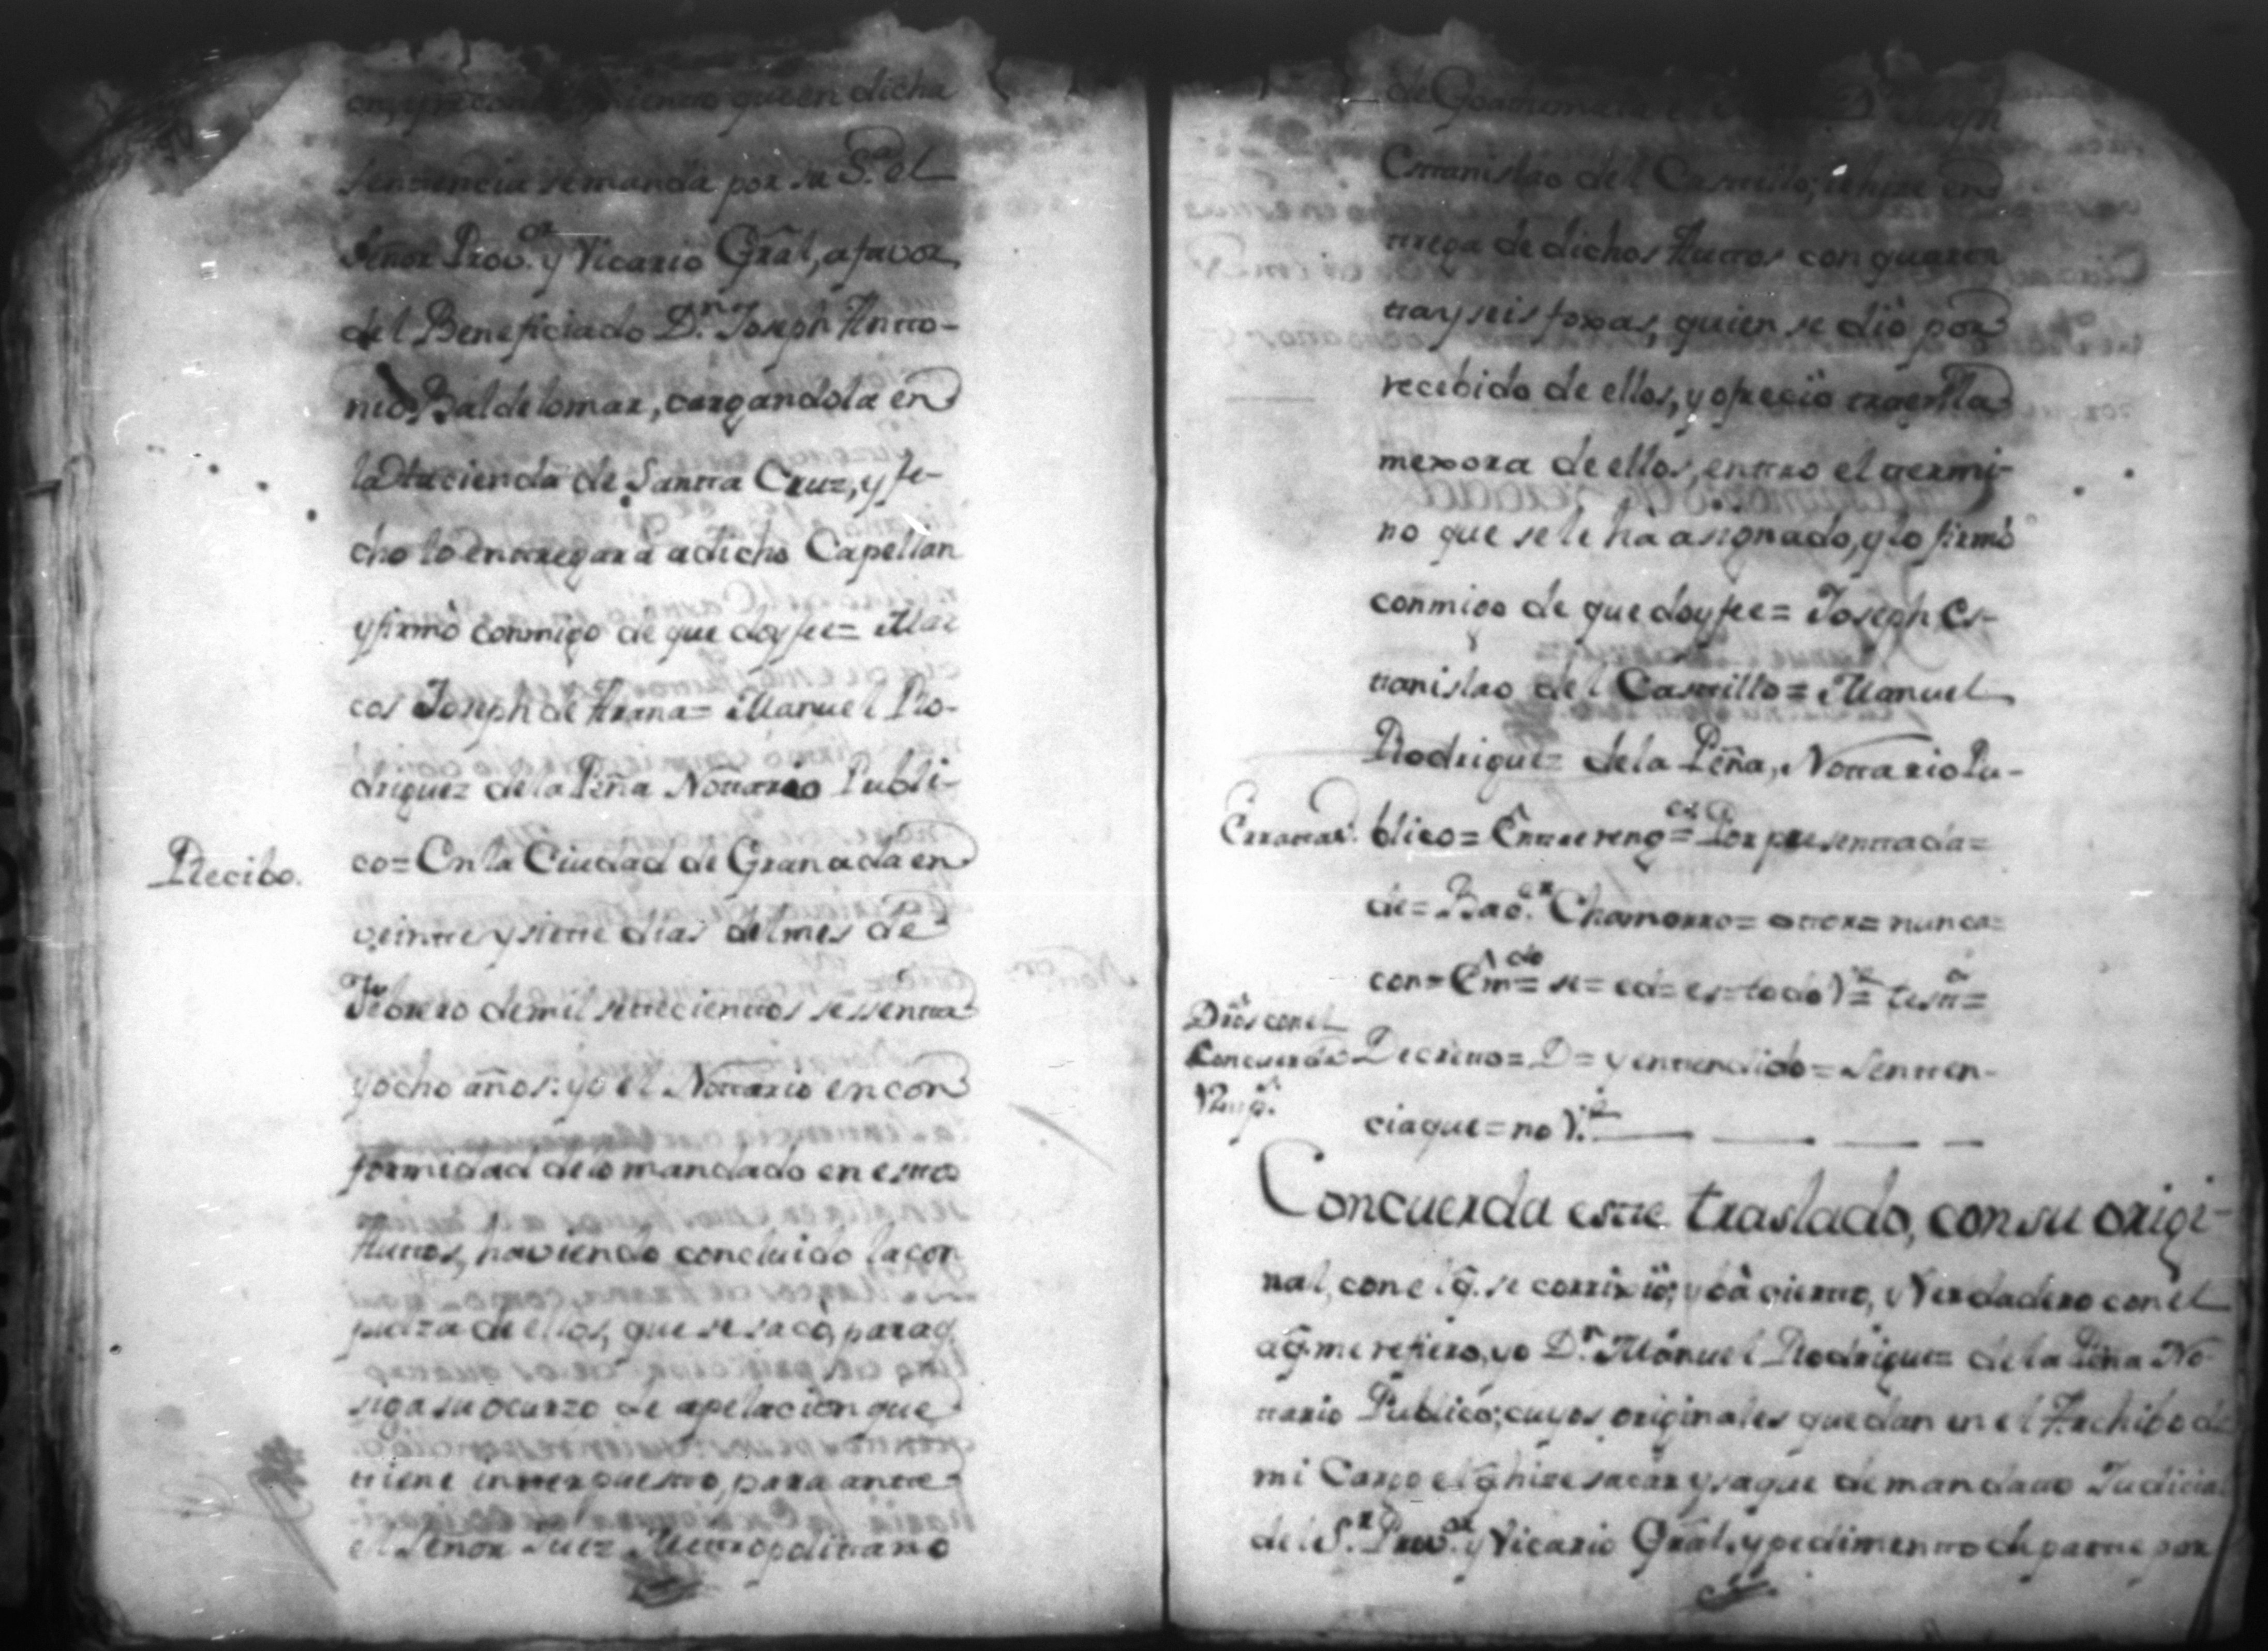 que en dicha
sentencia se manda por su S.ª el
Señor Prov.or y Vicario Grâl, a favor
del Beneficiado D.n Joseph Antto-
nio Baldelomar, cargandola en
la Hacienda de Santta Cruz, y fe-
cho lo enttregarà a dicho Capellan
y firmò conmigo de que doy fee= Mar
cos Joseph de Arana= Manuel Ro-
driguez de la Peña Nottario Publi-
Recibo.
co= En la Ciudad de Granada en
veintte y siette dias del mes de
Febrero de mil settecienttos sessentta
y ocho años: yo el Nottario en con
formidad de lo mandado en esttos
Auttos, haviendo concluido la con
pulza de ellos, que se sacó, para q̃
siga su ocurzo de apelacion que
ttiene intterpuestto, para antte
el Señor Juez Mettropolittano
de Goathemala
Esttanislao del Casttillo; le hize en
ttrega de dichos Auttos con quaren
tta y seis foxas, quien se diò por
recebido de ellos, y ofreciò traer la
mexora de ellos, enttro el ttermi-
no que se le hà asignado, y lo firmò
conmigo de que doy fee= Joseph Es-
ttanislao del Casttillo= Manuel
Rodriguez de la Peña, Nottario Pu-
Errattas.
blico= Enttrereng.es= Por presenttada=
de= Bac.er Chamorro= ottor= nunca=
con= Êm.do= se= ed= es= todo V.e= testt.a=
Dros con el
Concuerda
Decretto= D= y enttendido= Sentten-
cia que= no V.e
Concuerda estte traslado, con su origi-
nal, con el q̃. se corrixiò; y bà ciertto, y Verdadero con el
a q̃. me refiero, yo D.n Manuel Rodriguez de la Peña No-
ttario Publico; cuyos originales quedan en el Archibo de
mi Cargo el q̃ hize sacar y saque de mandatto Judicial
del S.r Prov.or y Vicario Grâl. y pedimentto de partte por